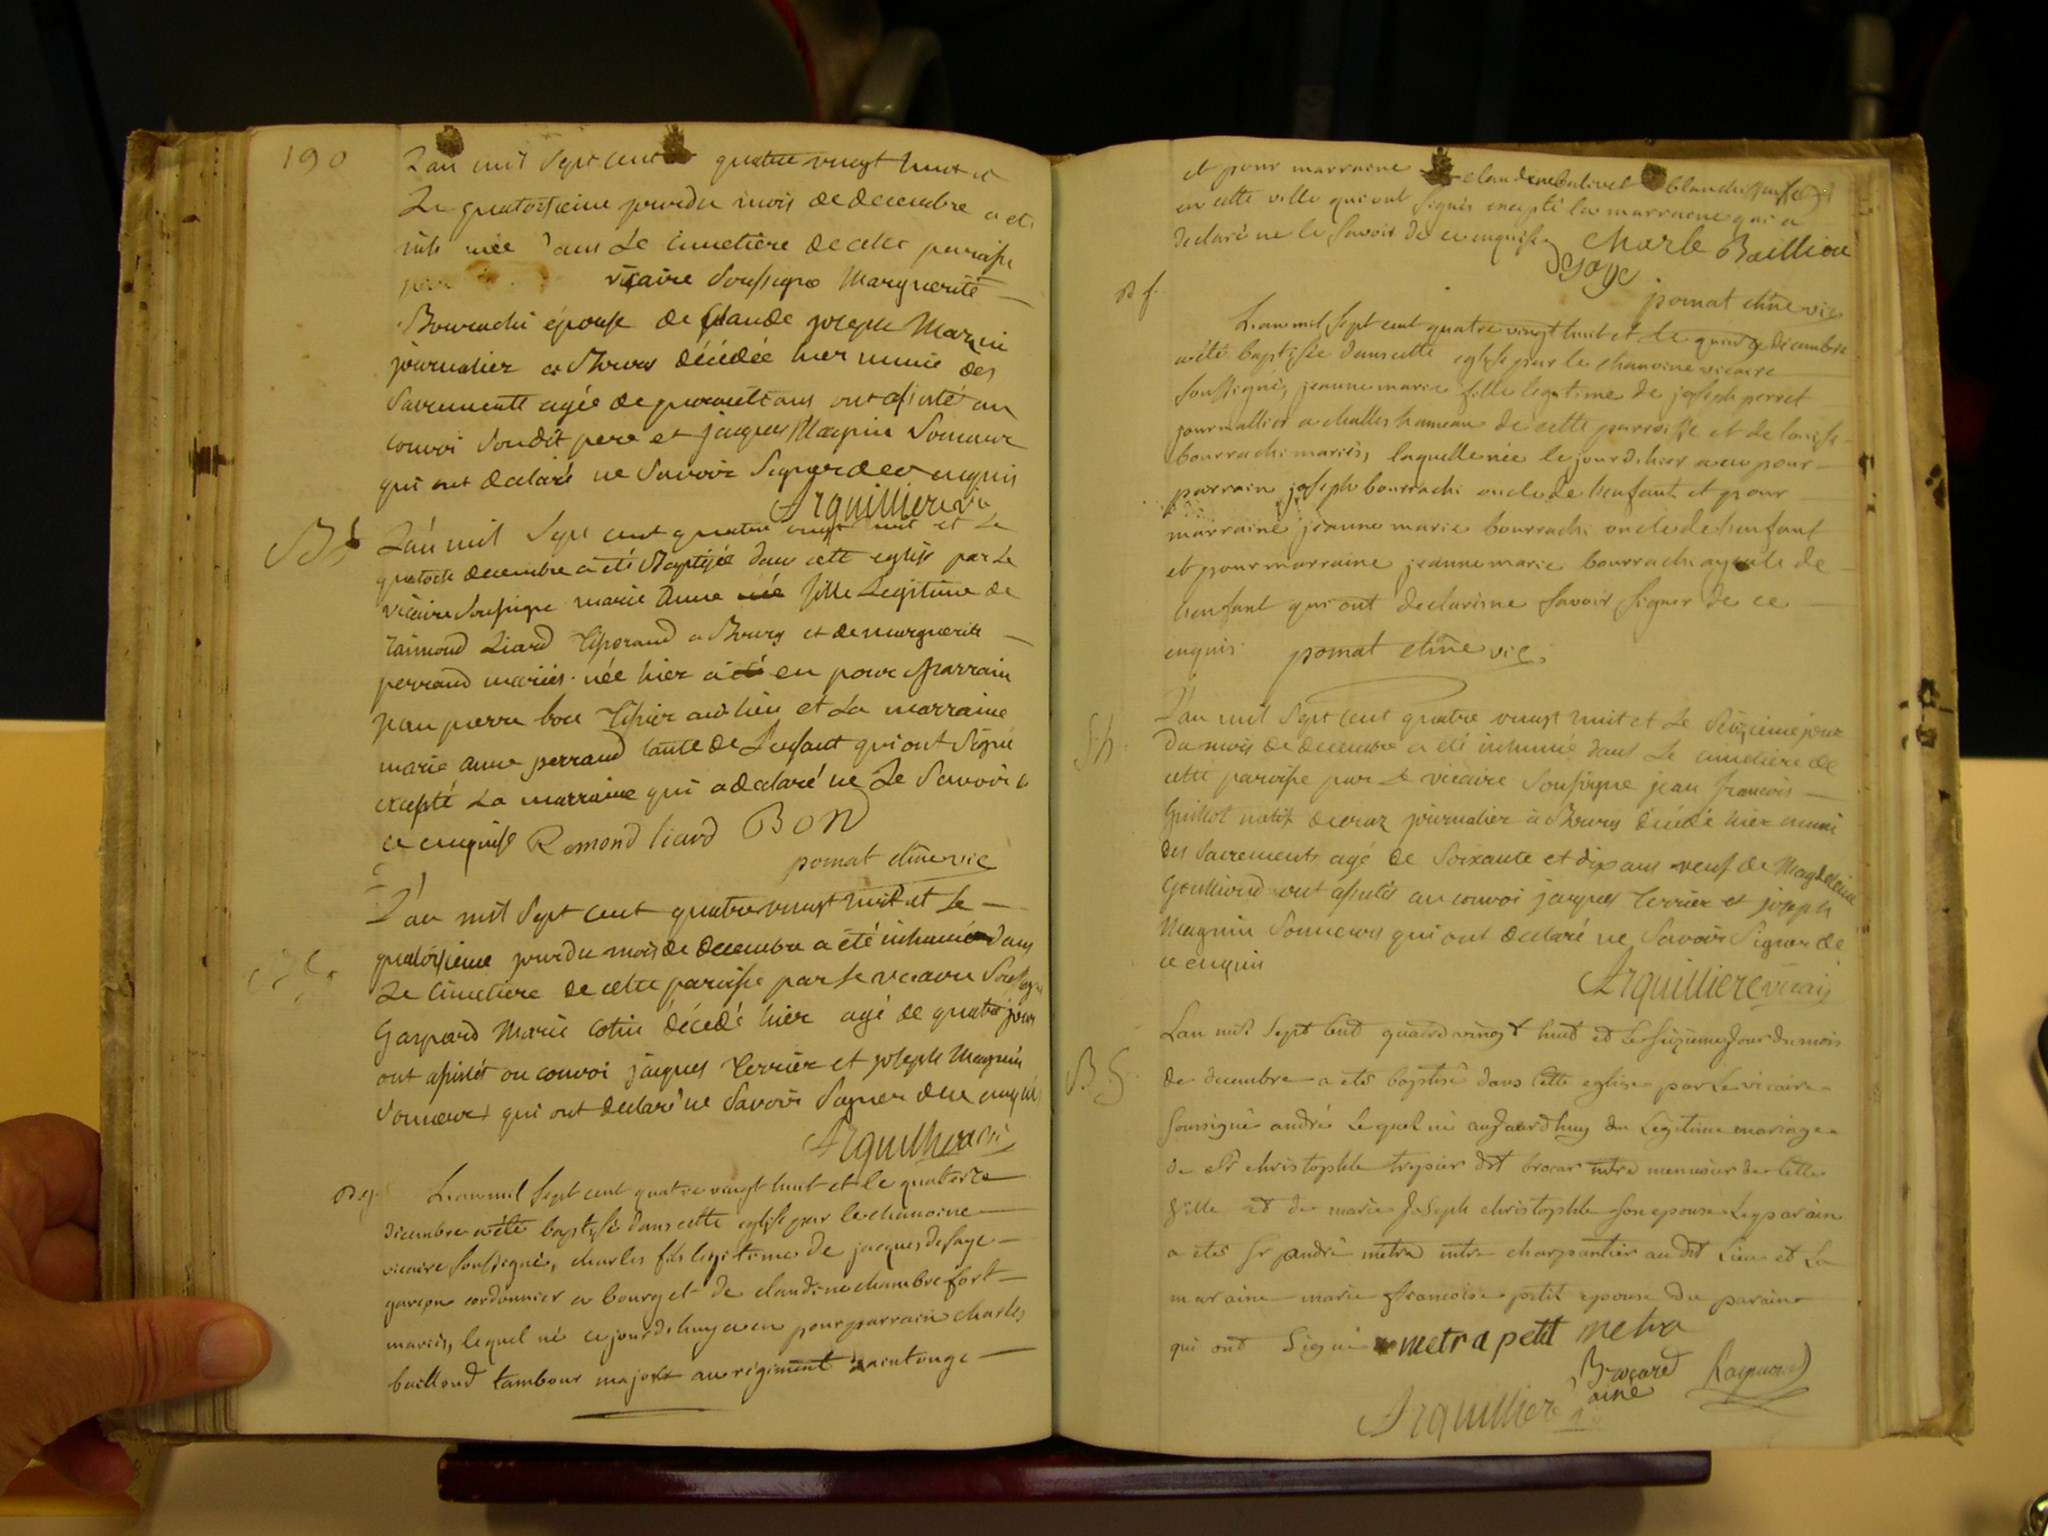 190
L'an mil Sept cent quatre vingt huit et
Le quatorzieme jour du mois de decembre a été
inhumée dans Le Cimetière de cette paroisse
par vicaire Soussigné Marguerite
Bourachi épouse de Claude joseph Magnin
journalier a Bourg décédée hier munie des
Sacrements agée de quarante ans ont assisté au
convoi Sondit pere et jacques Magnin Sonneur
qui ont declaré ne Savoir Signer de ce enquis
Arquilliere vic
Bf
L'an mil Sept cent quatre vingt huit et Le
quatorze decembre a été Baptisée dans cette eglise par Le
vicaire Soussigné marie Anne née fille Legitime de
Raimond Liard Tisserand a Bourg et de marguerite
perrand mariés née hier a été eu pour parrain
jean pierre bon audit lieu et La marraine
marie anne perrand tante de L'enfant qui ont Signé
excepté La marraine qui a declaré ne Le Savoir de
ce enquise Remond liard BON
pomat chne vic
L'an mil Sept cent quatre vingt huit et Le
quatorzieme jour du mois de decembre a été inhumé dans
Le Cimetiere de cette paroisse par Le vicaire Soussigné
Gaspard Marie Cotin décédé hier agé de quatre jours
ont assistés au convoi jacques Terrier et joseph Magnin
Sonneurs qui ont declaré ne Savoir Signer de ce enquis
Arquilliere vic
Bg
L'an mil Sept cent quatre vingt huit et le quatorze
decembre a été baptisé dans cette eglise par le chanoine
vicaire Soussigné, charles fils legitime de jacques desaye
garçon cordonnier a bourg et de claudine chambrefort
mariés, lequel né ce jourdhuy a eu pour parrain charles
bailloud tambour major au regiment Saintonge
et pour marraine claudine blanchisseuse
en cette ville qui ont Signés excepté la marraine qui a
declaré ne le Savoir de ce enquise Charle Bailliou
Desaye
pomat chne vic
Bf.
L'an mil Sept cent quatre vingt huit et le quinze decembre
a été baptisée dans cette eglise par le chanoine vicaire
Soussigné, jeanne marie fille legitime de joseph perret
journallier a challes hameau de cette parroisse et de louise
bourrachi mariés, laquelle née le jour d'hier a eu pour
parrain joseph bourrachi oncle de l'enfant et pour
marraine jeanne marie bourrachi oncle de l'enfant
et pour marraine jeanne marie bourrachi ayeule de
l'enfant qui ont declarés ne Savoir Signer de ce
enquis pomat chne vic.
Sh.
L'an mil Sept cent quatre vingt huit et Le Seizieme jour
du mois de decembre a été inhumé dans Le Cimetiere de
cette paroisse par Le vicaire Soussigné jean francois
Guillot natif journalier à Bourg décédé hier muni
des Sacrements agé de Soixante et dix ans veuf de Magdelaine
ont assistés au convoi jacques Terrier et joseph
Magnin Sonneurs qui ont declaré ne Savoir Signer de
ce enquis
Arquilliere vicaire
BG
L'an mil Sept Cent quatre vingt huit et Le Seizieme Jour du mois
de decembre a eté baptisé dans cette eglise par Le vicaire
Soussigné andré Lequel né aujourdhuy du Legitime mariage
de Sr christophle dit brocar mtre menuisier de cette
ville et de marie Joseph christophle Son epouse Le parain
a eté Sr andré metra mtre charpantier audit Lieu et La
maraine marie francoise petit epouse du parain
qui ont Signé metra petit metra
Brocard Raymond
ainé
Arquilliere